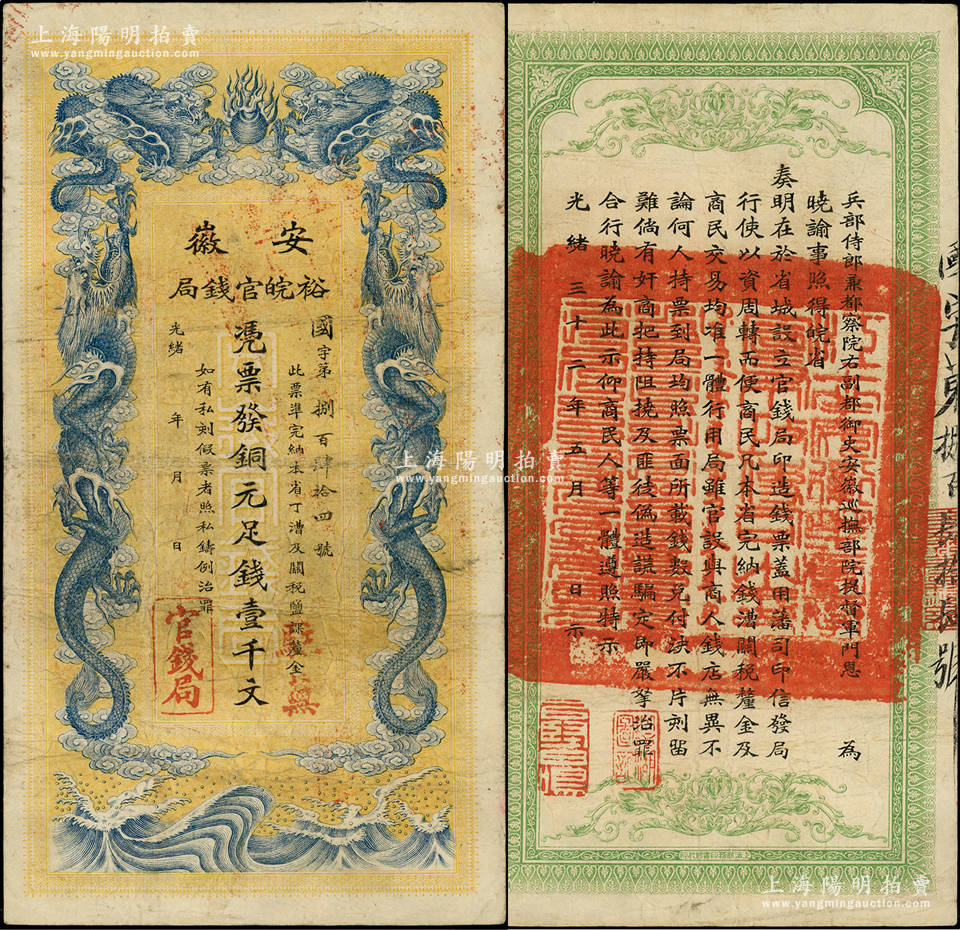 上海陽明拍賣
www.yangmingauction.com
安徽
裕皖官錢局
國字第捌百肆拾四號
此票準完納本省丁漕及關稅鹽課釐金
憑票發銅元足錢壹千文
如有私刻假票者照私鑄例治罪
光緒 年 月 日
官錢局
兵部侍郎兼都察院右副都御史安徽巡撫部院提督軍門恩 為
曉諭事照得皖省
奏明在於省城設立官錢局印造錢票蓋用藩司印信發局
行使以資周轉而便商民凡本省完納錢漕關稅釐金及
商民交易均准一體行用局雖官設與商人錢店無異不
論何人持票到局均照票面所載錢數兌付決不片刻留
難倘有奸商把持阻撓及匪徒偽造誆騙定即嚴拏治罪
合行曉諭為此示仰商民人等一體遵照特示
光緒三十二年五月 日示
上海陽明拍賣
www.yangmingauction.com
上海陽明拍賣
www.yangmingauction.com